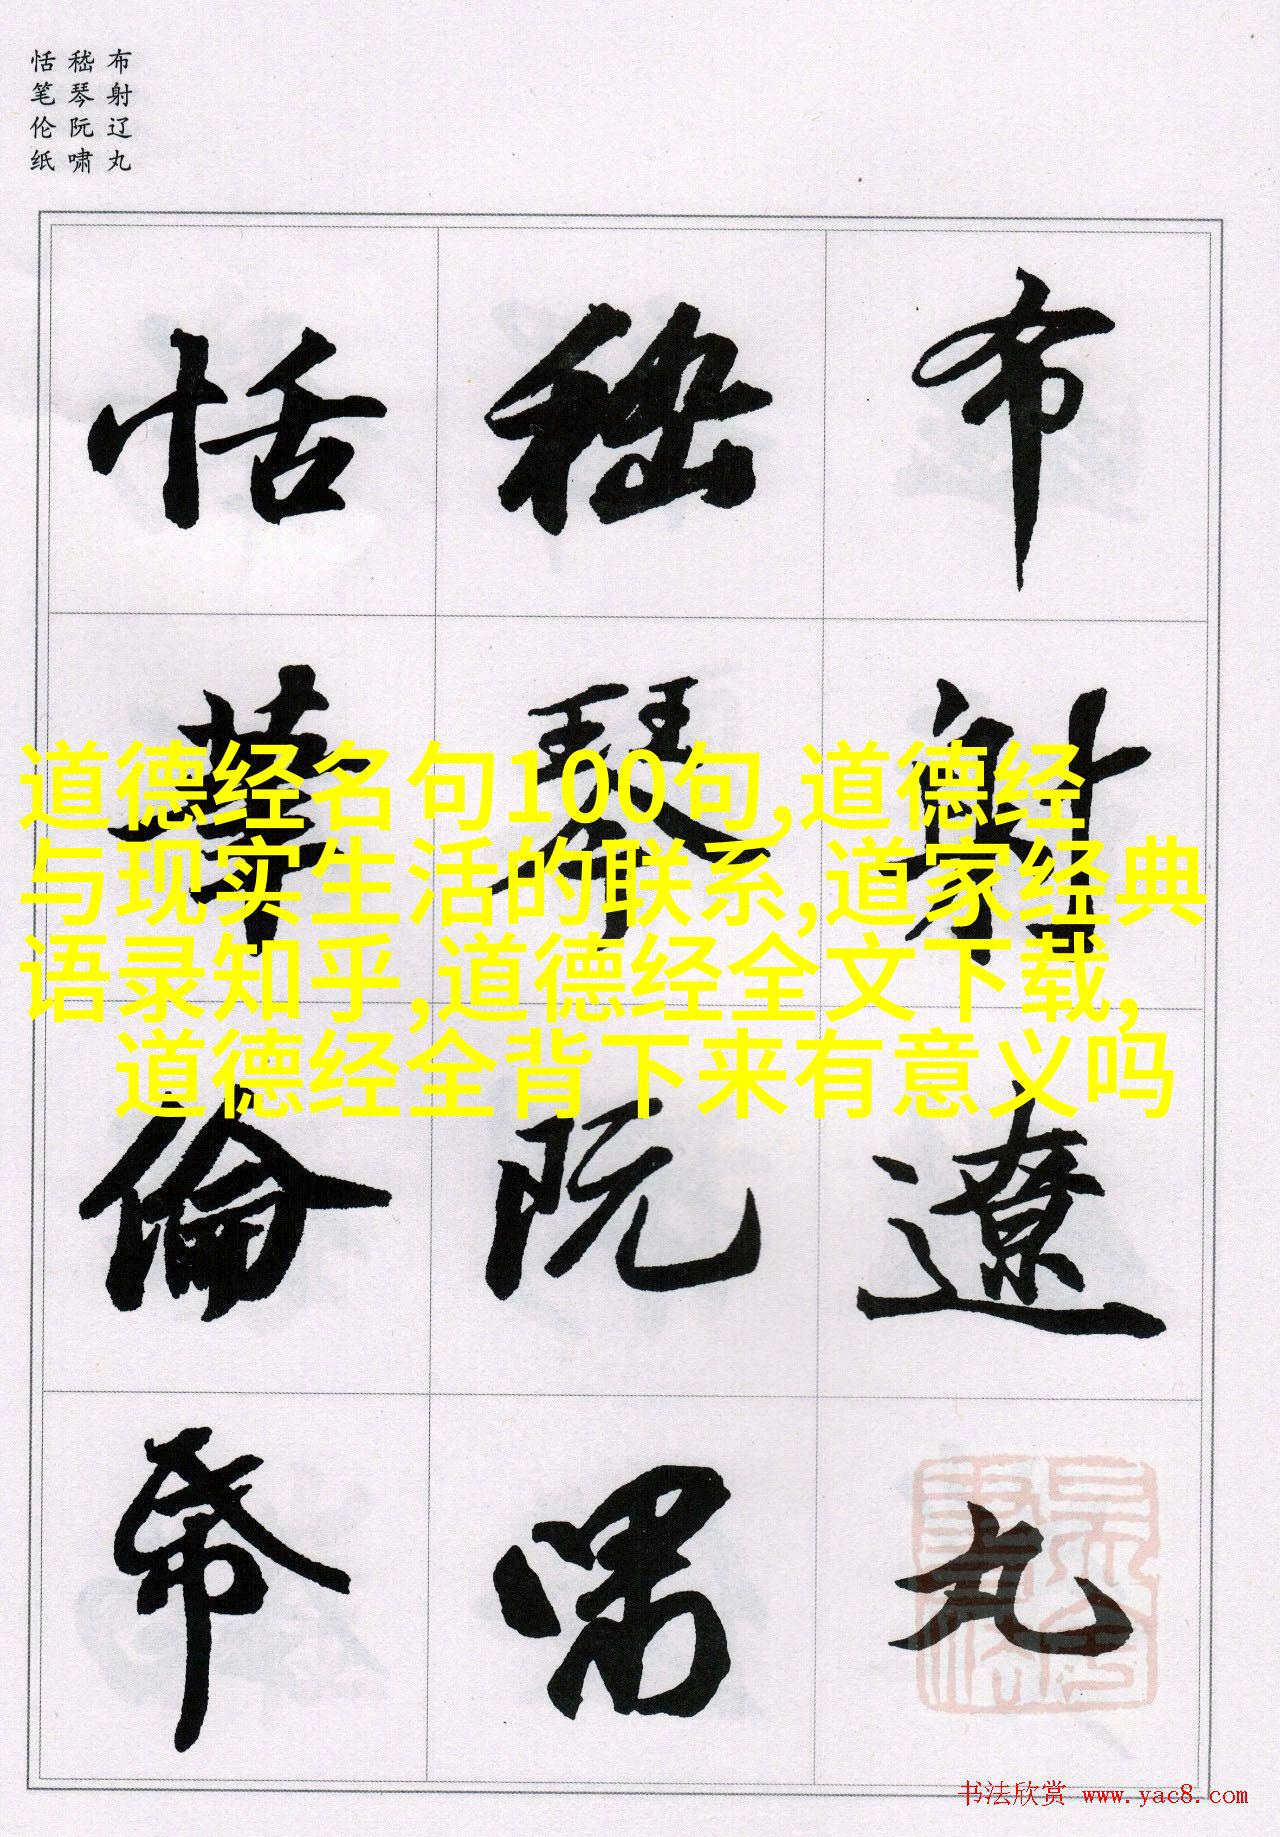 布射辽丸
嵇琴阮啸
恬笔伦纸
布射遼丸
嵇琴阮嘯
恬筆倫帋
道德经名句100句,道德经
与现实生活的联系,道家经典
语录知乎,道德经全文下载,
道德经全背下来有意义吗
书法欣赏 www.yac8.com